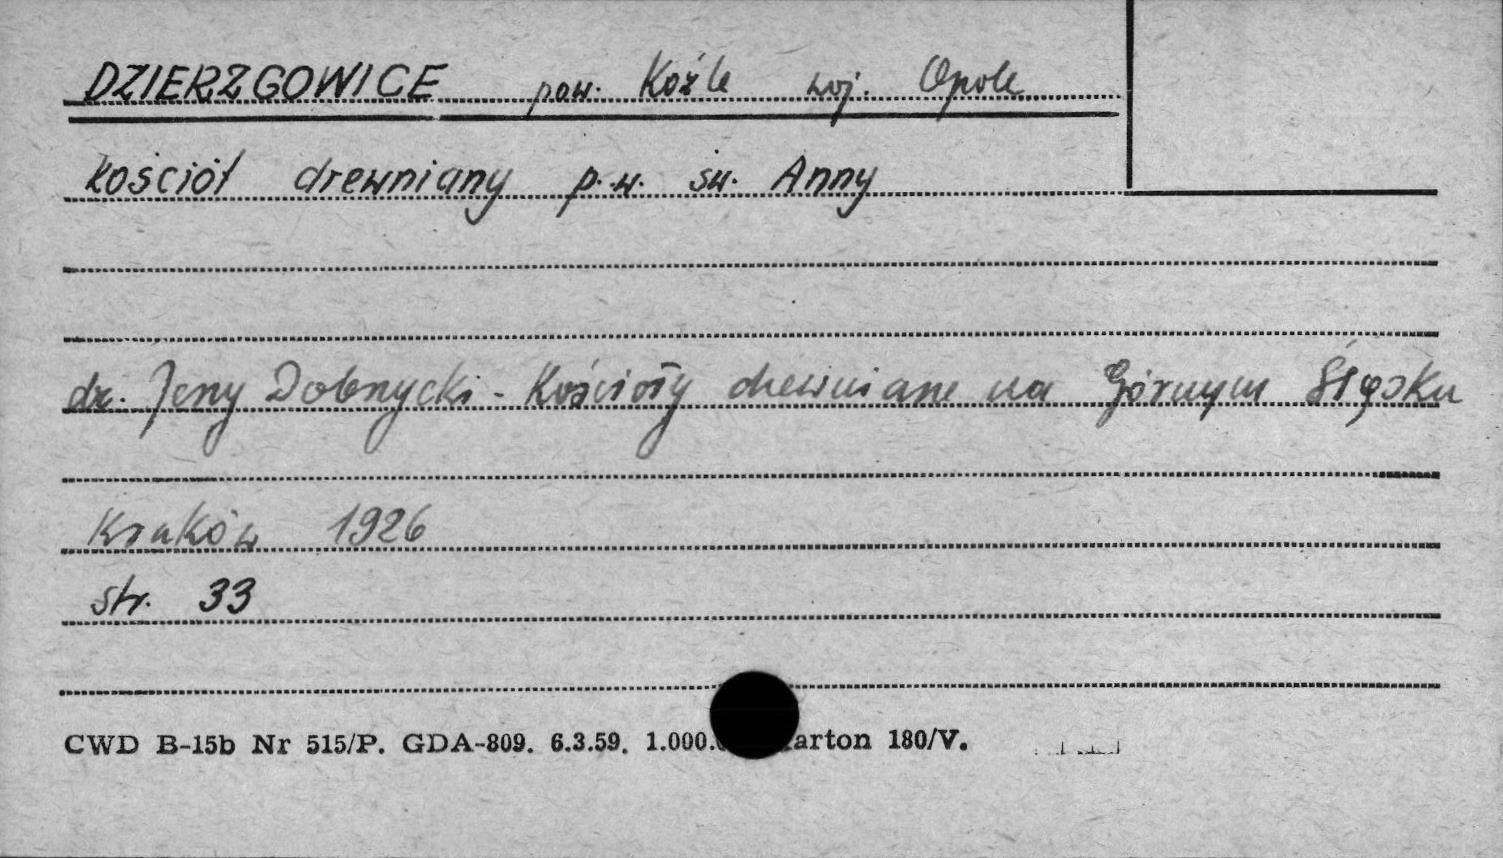 DZIERZGOWICE pow. Koźle woj. Opole
kościół drewniany p.w. św. Anny
dr. Jerzy Dobrzycki - Kościoły drewniane na Górnym Śląsku
Kraków 1926
str. 33
CWD B-15b Nr 515/P. GDA-809. 6.3.59. 1.000. arton 180/V.